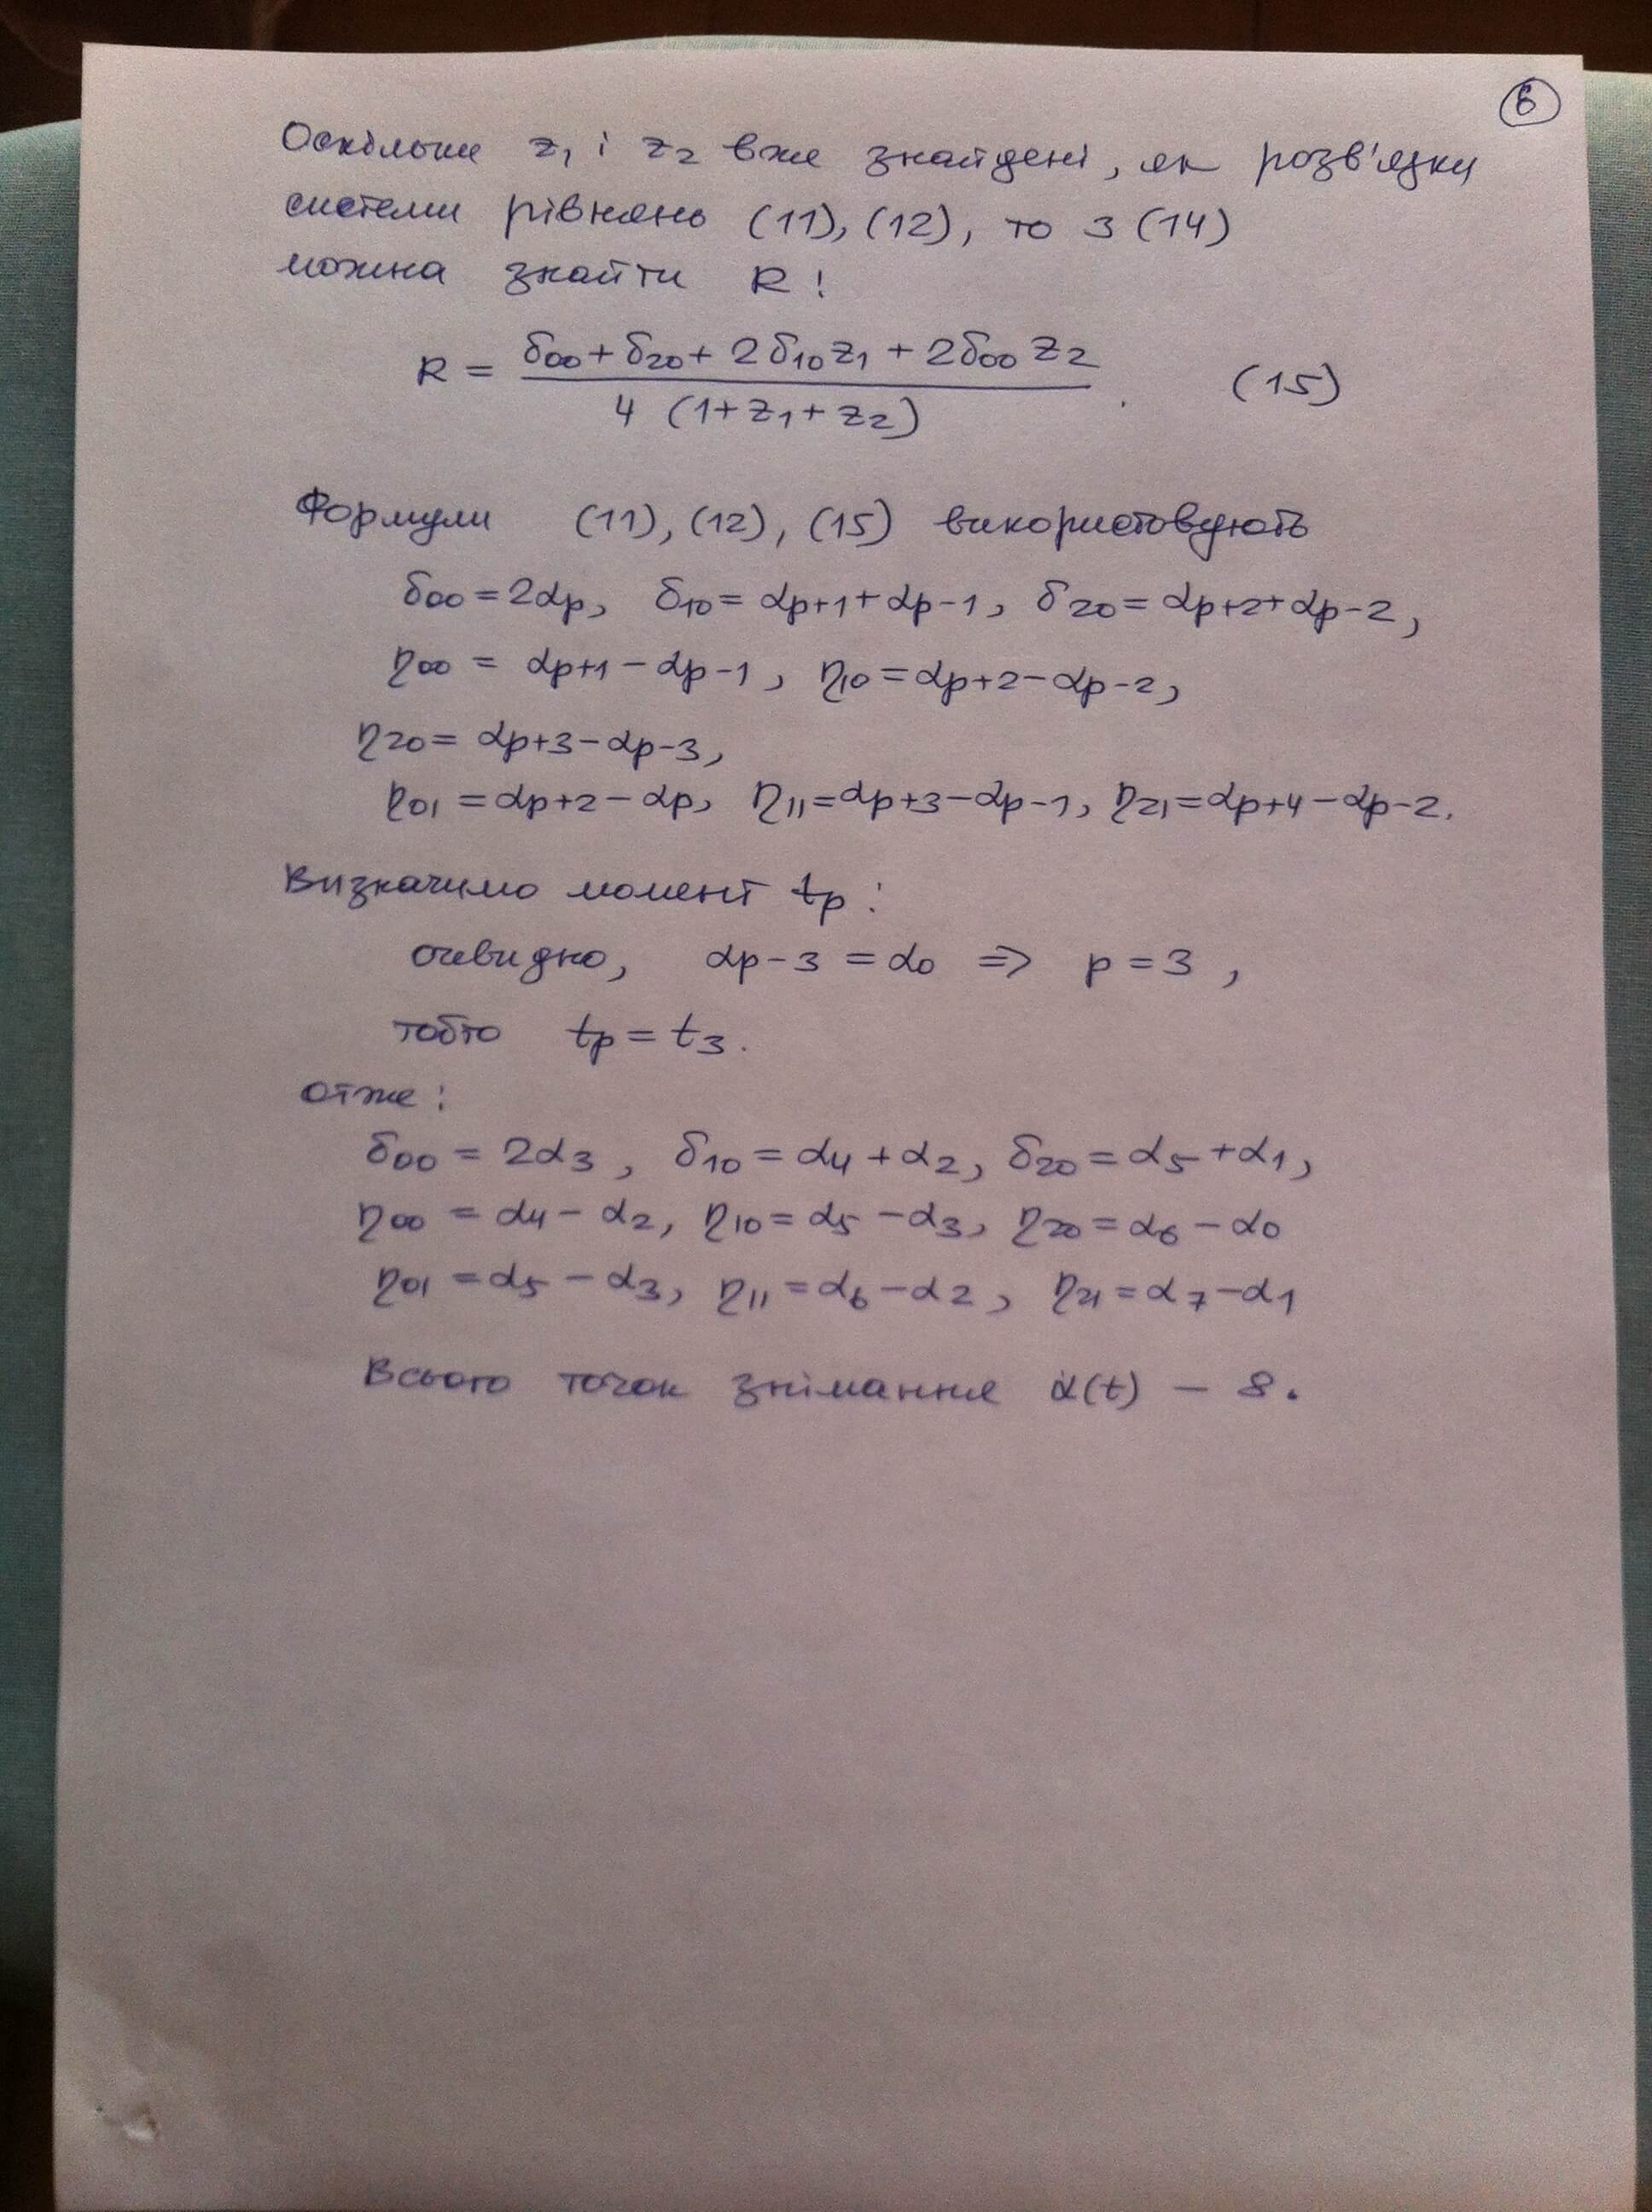 6
Оскільки z₁ і z₂ вже знайдені, як розв'язки
системи рівнянь (11), (12), то з (14)
можна знайти R:
R = (δ₀₀ + δ₂₀ + 2δ₁₀z₁ + 2δ₀₀z₂) / (4 (1+z₁+z₂)). (15)
Формули (11), (12), (15) використовують
δ₀₀ = 2αp, δ₁₀ = αp+1 + αp-1, δ₂₀ = αp+2 + αp-2,
η₀₀ = αp+1 - αp-1, η₁₀ = αp+2 - αp-2,
η₂₀ = αp+3 - αp-3,
η₀₁ = αp+2 - αp, η₁₁ = αp+3 - αp-1, η₂₁ = αp+4 - αp-2.
Визначимо момент tp:
очевидно, αp-3 = α₀ ⇒ p = 3,
тобто tp = t₃.
Отже:
δ₀₀ = 2α₃, δ₁₀ = α₄ + α₂, δ₂₀ = α₅ + α₁,
η₀₀ = α₄ - α₂, η₁₀ = α₅ - α₃, η₂₀ = α₆ - α₀
η₀₁ = α₅ - α₃, η₁₁ = α₆ - α₂, η₂₁ = α₇ - α₁
Всього точок знімання α(t) — 8.